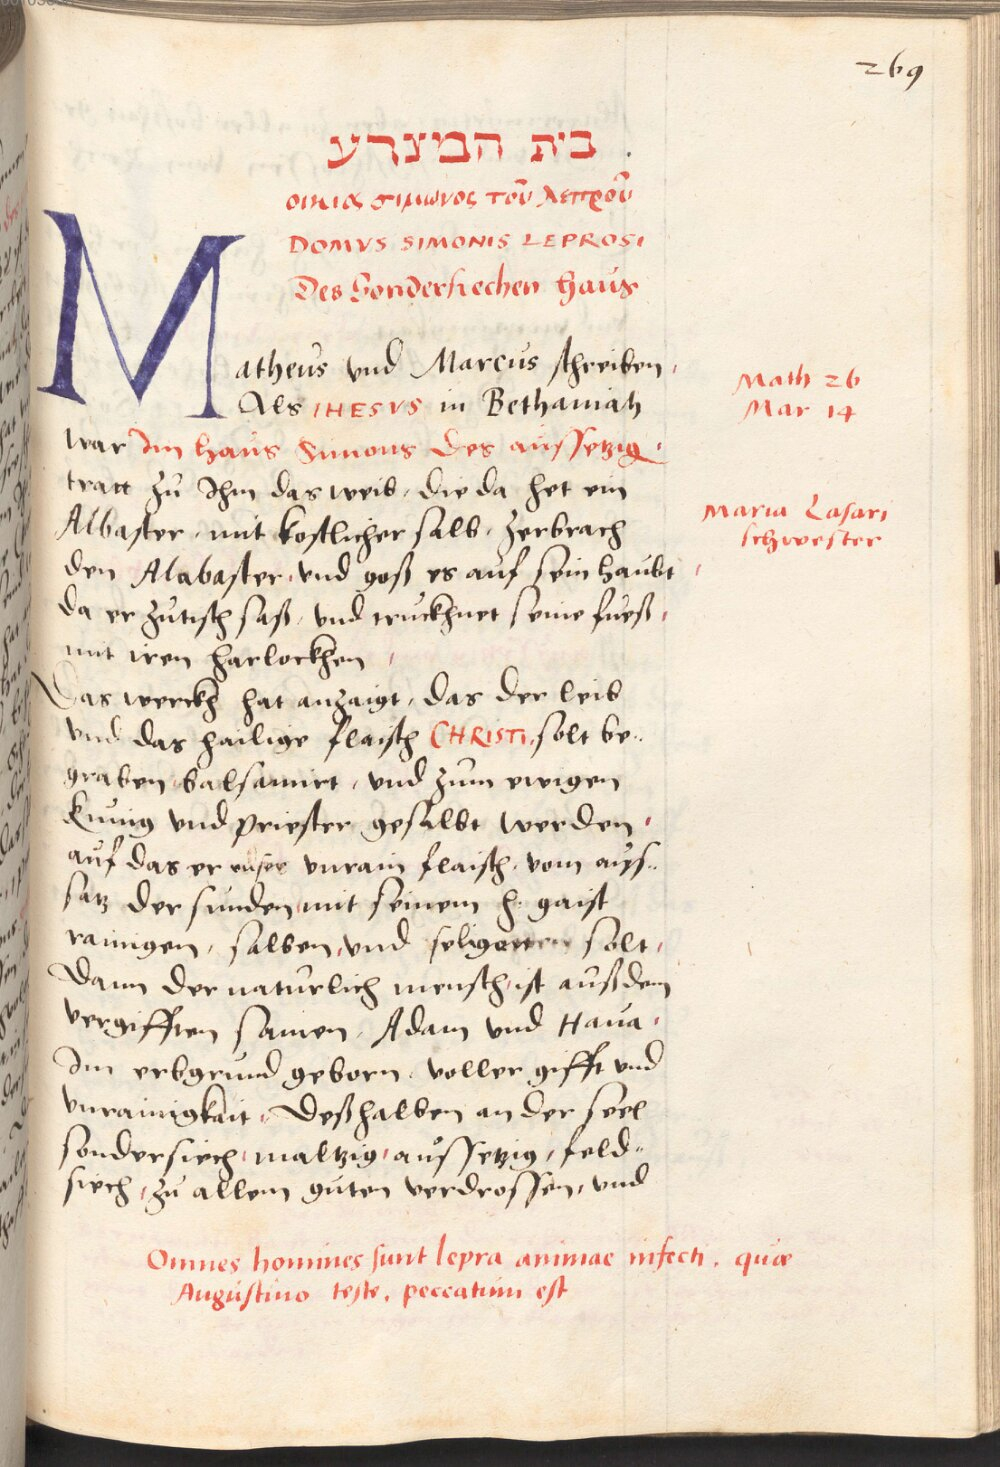 269
בית המצרע
οικια σιμωνος τοῦ λεπροῦ
DOMVS SIMONIS LEPROSI
Des Sondersiechen Haus
Matheus vnd Marcus schreiben,
Als IHESVS in Bethaniah
war Im haus Simons des aussetzig,
tratt zu Ihm das weib, die da het ein
Albaster, mit kostlicher salb, zerbrach
den Alabaster, vnd goß es auf sein haubt,
da er zutisch saß, vnd truckhnet seine fueß,
mit iren harlockhen,
Das werckh hat anzaigt, das der leib
vnd das hailige flaisch CHRISTI, solt be..
graben balsamirt, vnd zum ewigen
Kunig vnd priester gesalbt werden,
auf das er unser vnrain flaisch, vom auss..
satz der sunden, mit seinem h. gaist
rainigen, salben, vnd solt,
Dann der naturlich mensch, ist auß dem
vergifften samen, Adam vnd Haua,
Im erbgrund geborn, voller gifft vnd
vnrainigkait, Deßhalben an der seel
sondersiech, maltzig, aussetzig, feld..
siech, zu allem guten verdrossen, vnd
Math 26
Mar 14
Maria Lasari
schwester
Omnes homines sunt lepra animae infecti, quae
Augustino teste, peccatum est